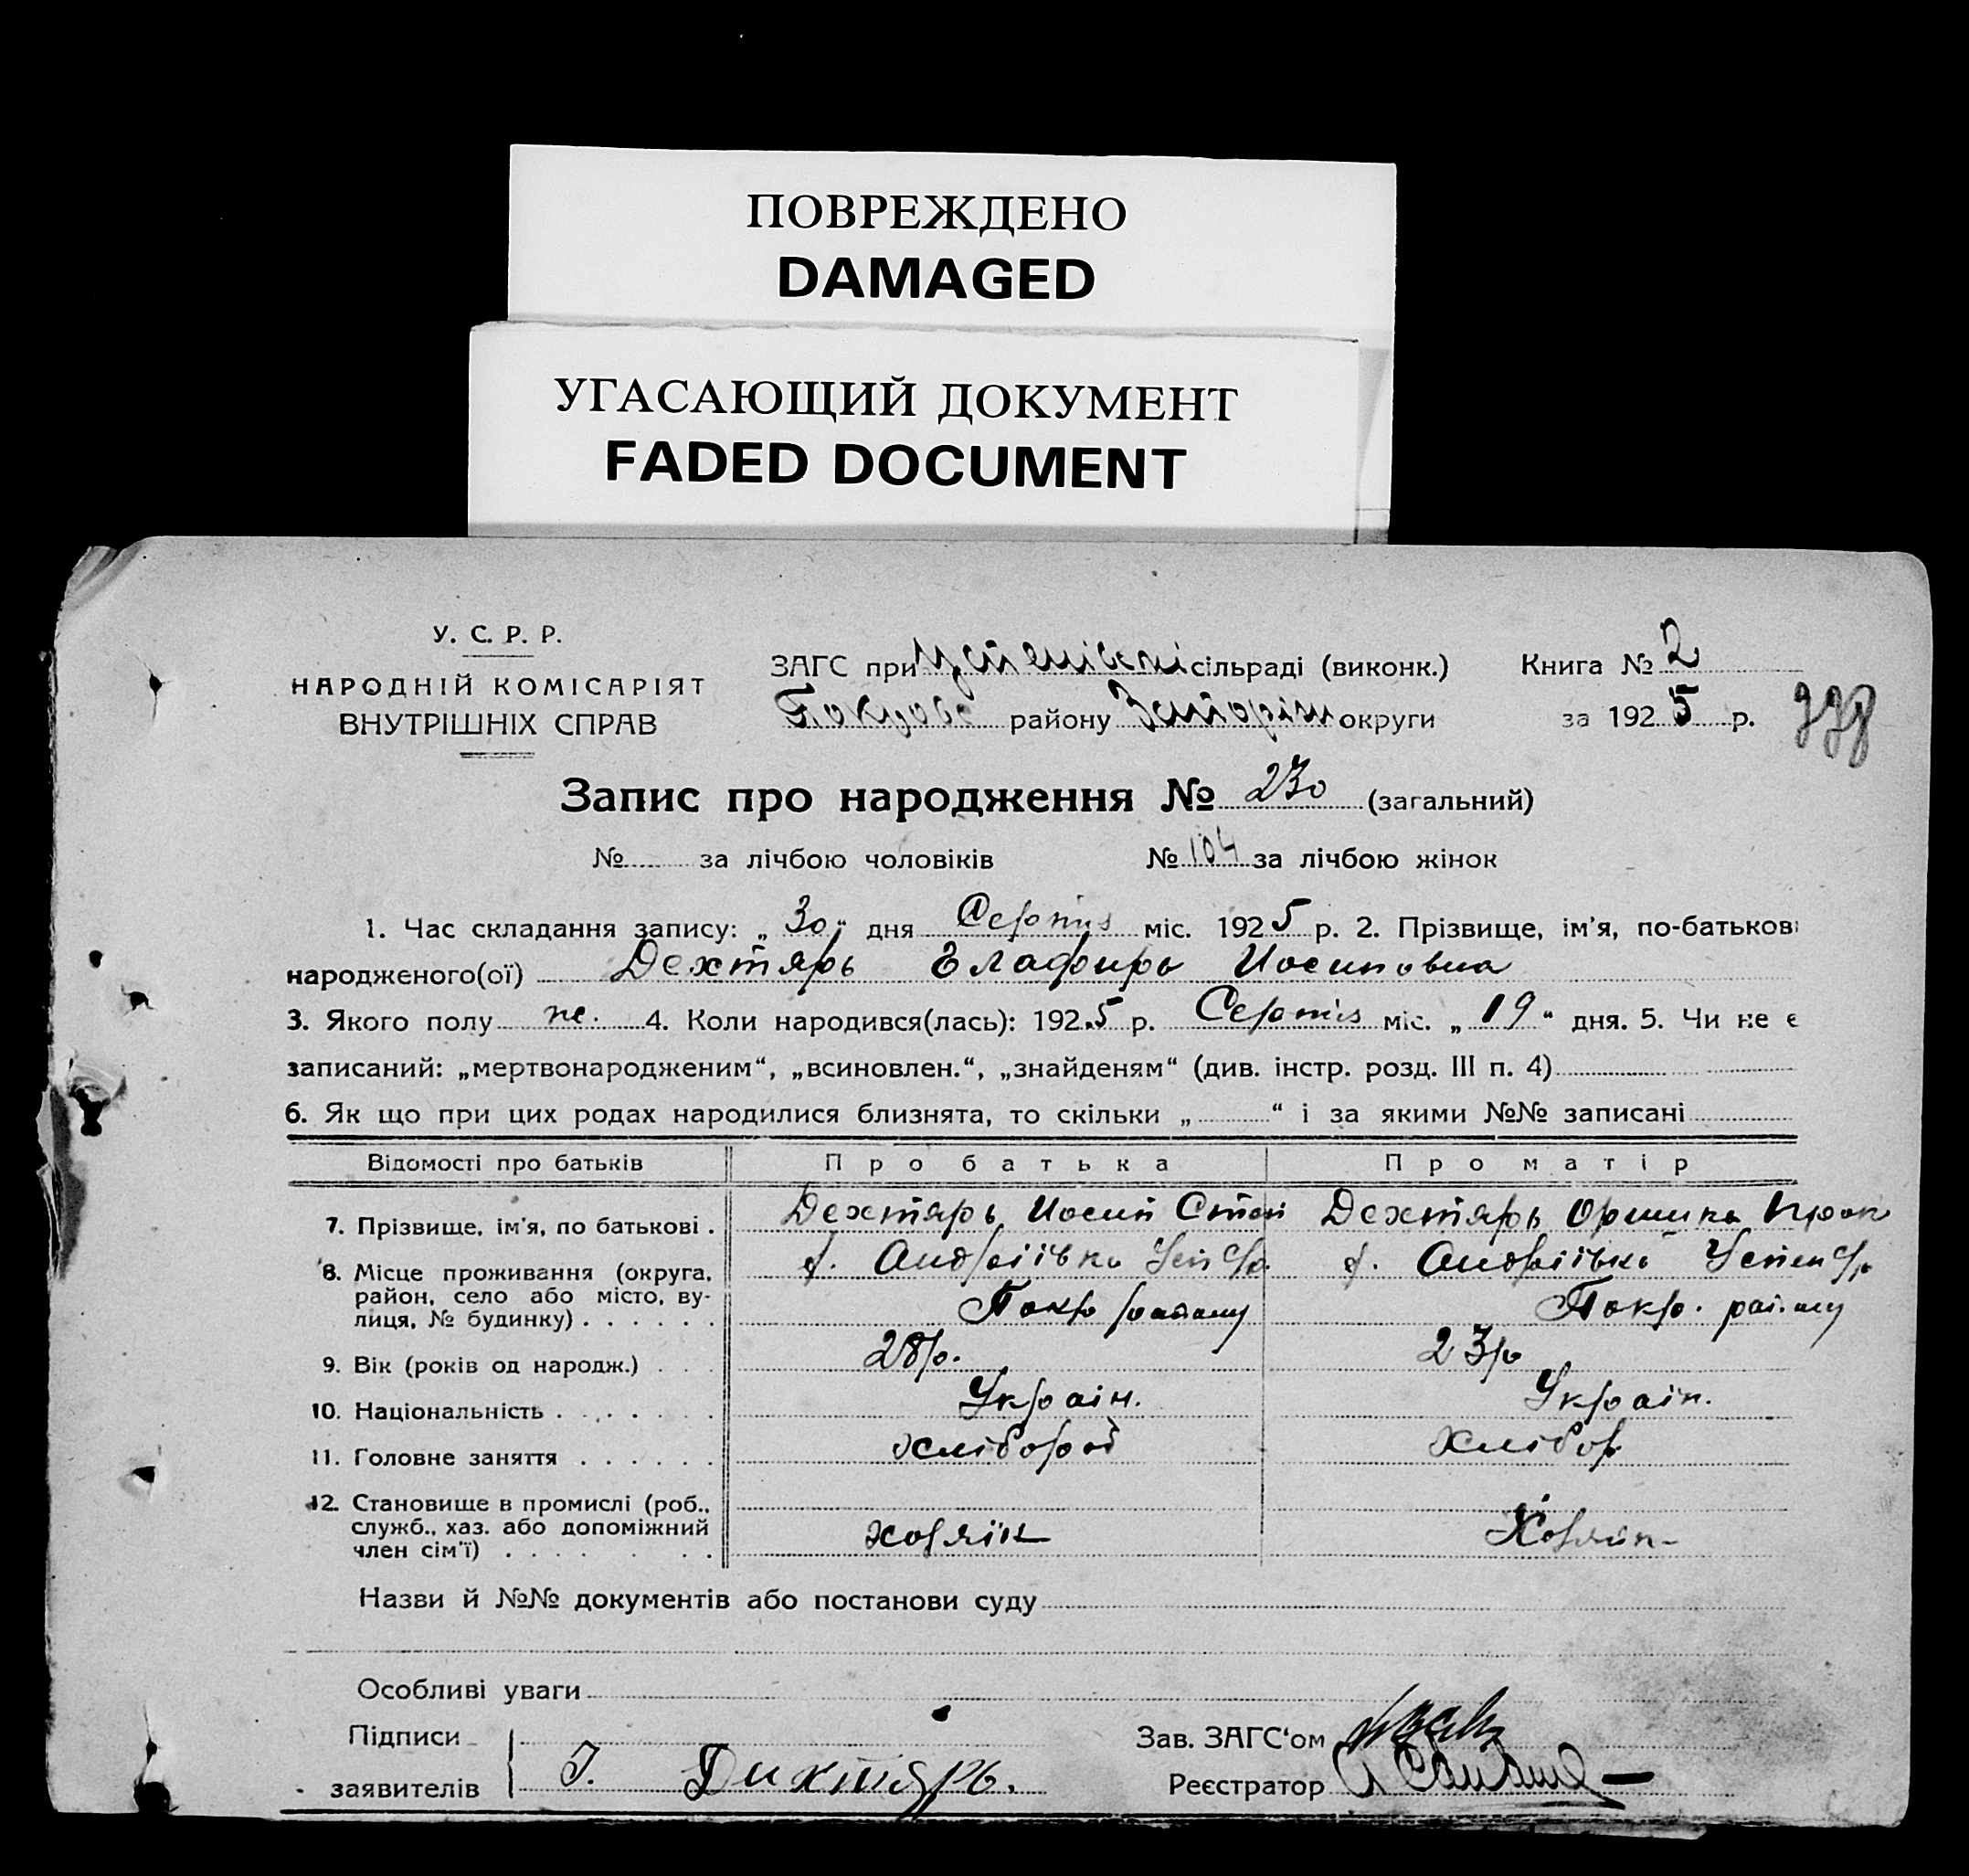 ПОВРЕЖДЕНО
DAMAGED
УГАСАЮЩИЙ ДОКУМЕНТ
FADED DOCUMENT
У. С. Р. Р.
НАРОДНІЙ КОМІСАРІЯТ
ВНУТРІШНІХ СПРАВ
ЗАГС при Успенівскі сільраді (виконк.)
району Запоріж округи
Книга № 2
за 1925 р.
338
Запис про народження № 230 (загальний)
№ за лічбою чоловіків № 104 за лічбою жінок
1. Час складання запису: „30“ дня Серпня міс. 1925 р. 2. Прізвище, ім'я, по-батькові
народженого(ої) Дехтярь Елафирь Иосиповна
3. Якого полу ж. 4. Коли народився(лась): 1925 р. Серпня міс. „19“ дня. 5. Чи не є
записаний: „мертвонародженим“, „всиновлен.“, „знайденям“ (див. інстр. розд. III п. 4)
6. Як що при цих родах народилися близнята, то скільки „ “ і за якими №№ записані
Відомості про батьків Про батька Про матір
7. Прізвище, ім'я, по батькові . Дехтярь Иосип Степ Дехтярь Оришка Прок
8. Місце проживання (округа, район, село або місто, вулиця, № будинку) . . . . . . с. Андріївка Усп с/р. Покр району с. Андріївка Успен с/р Покр. району
9. Вік (років од народж.) . . . 28 р. 23 р
10. Національність . . . . . . . Україн. Україн.
11. Головне заняття . . . . . . хлібороб хлібор
12. Становище в промислі (роб., служб., хаз. або допоміжний член сім'ї) . . . . . . . хозяїн Хозяїн
Назви й №№ документів або постанови суду
Особливі уваги
Підписи
заявителів І. Дихтярь.
Зав. ЗАГС'ом
Реєстратор